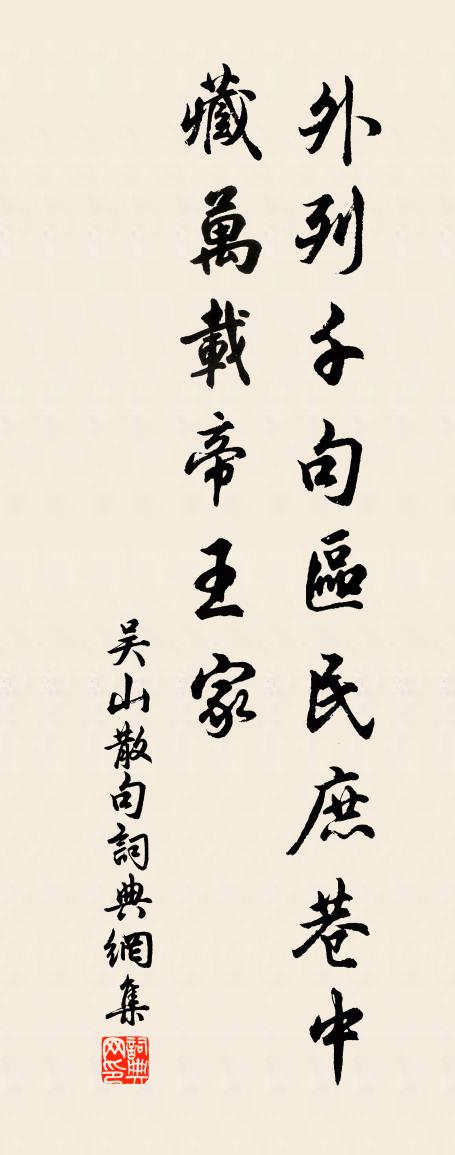 外列千句區民庶巷中
藏萬載帝王家
吴山散句詞典網集
詞典網印